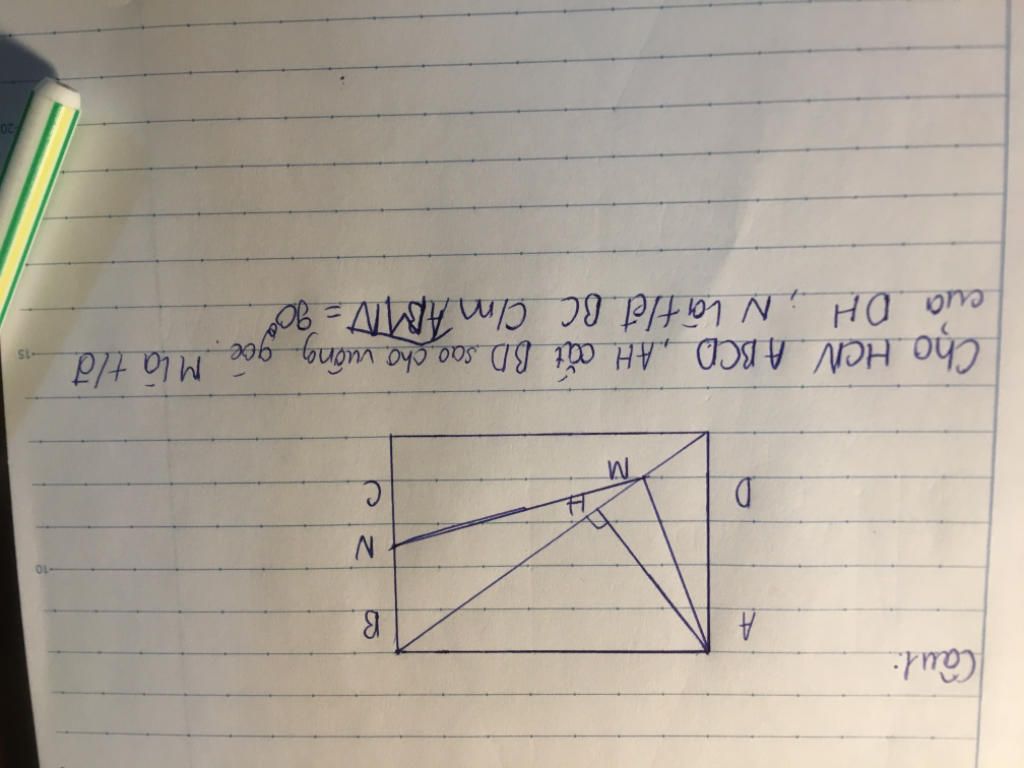 Câu1:
A B
N
H
M
D C
Cho HCN ABCD, AH cắt BD sao cho vuông góc. M là t/đ
của DH ; N là t/đ BC C/m AMN = 90°
10
15